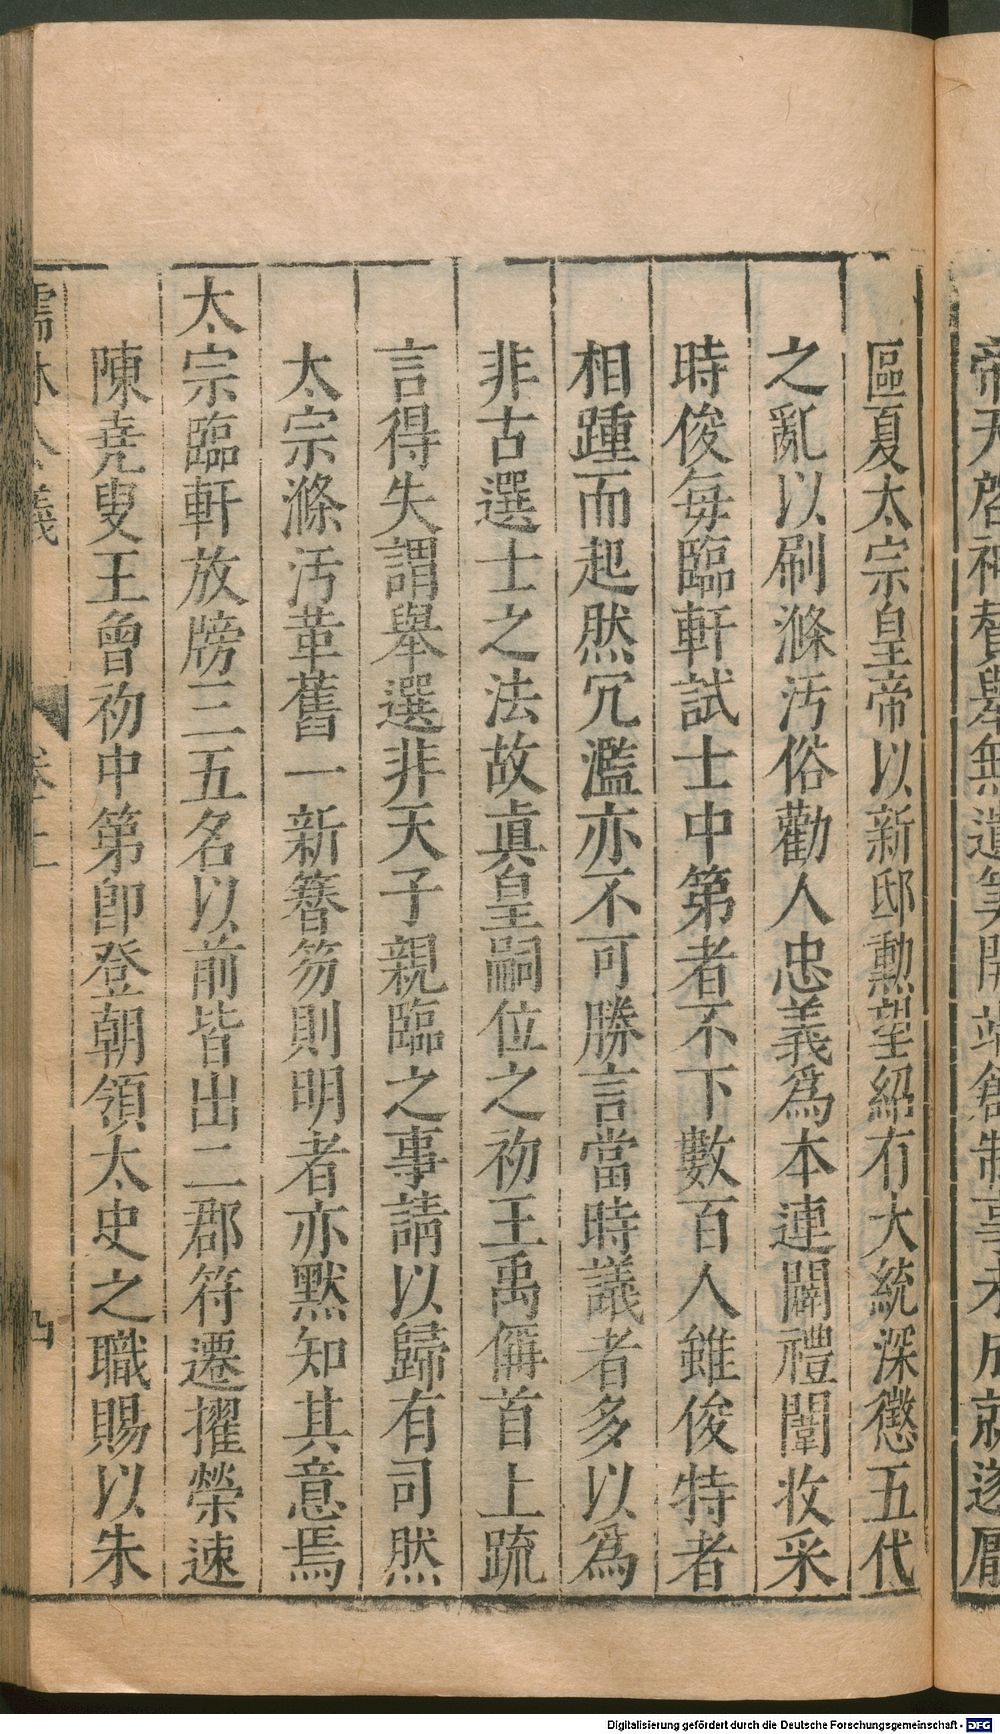 區夏太宗皇帝以新邸勲望紹有大統深懲五代
之亂以刷滌汚俗勸人忠義為本連闢禮闈收采
時俊每臨軒試士中第者不下數百人雖俊特者
相踵而起然冗濫亦不可勝言當時議者多以為
非古選士之法故眞皇嗣位之初王禹偁首上疏
言得失謂舉選非天子親臨之事請以歸有司然
太宗滌汚革舊一新簪笏則明者亦黙知其意焉
太宗臨軒放牓三五名以前皆出二郡符遷擢榮速
陳堯叟王曾初中第卽登朝領太史之職賜以朱
Digitalisierung gefördert durch die Deutsche Forschungsgemeinschaft - DFG